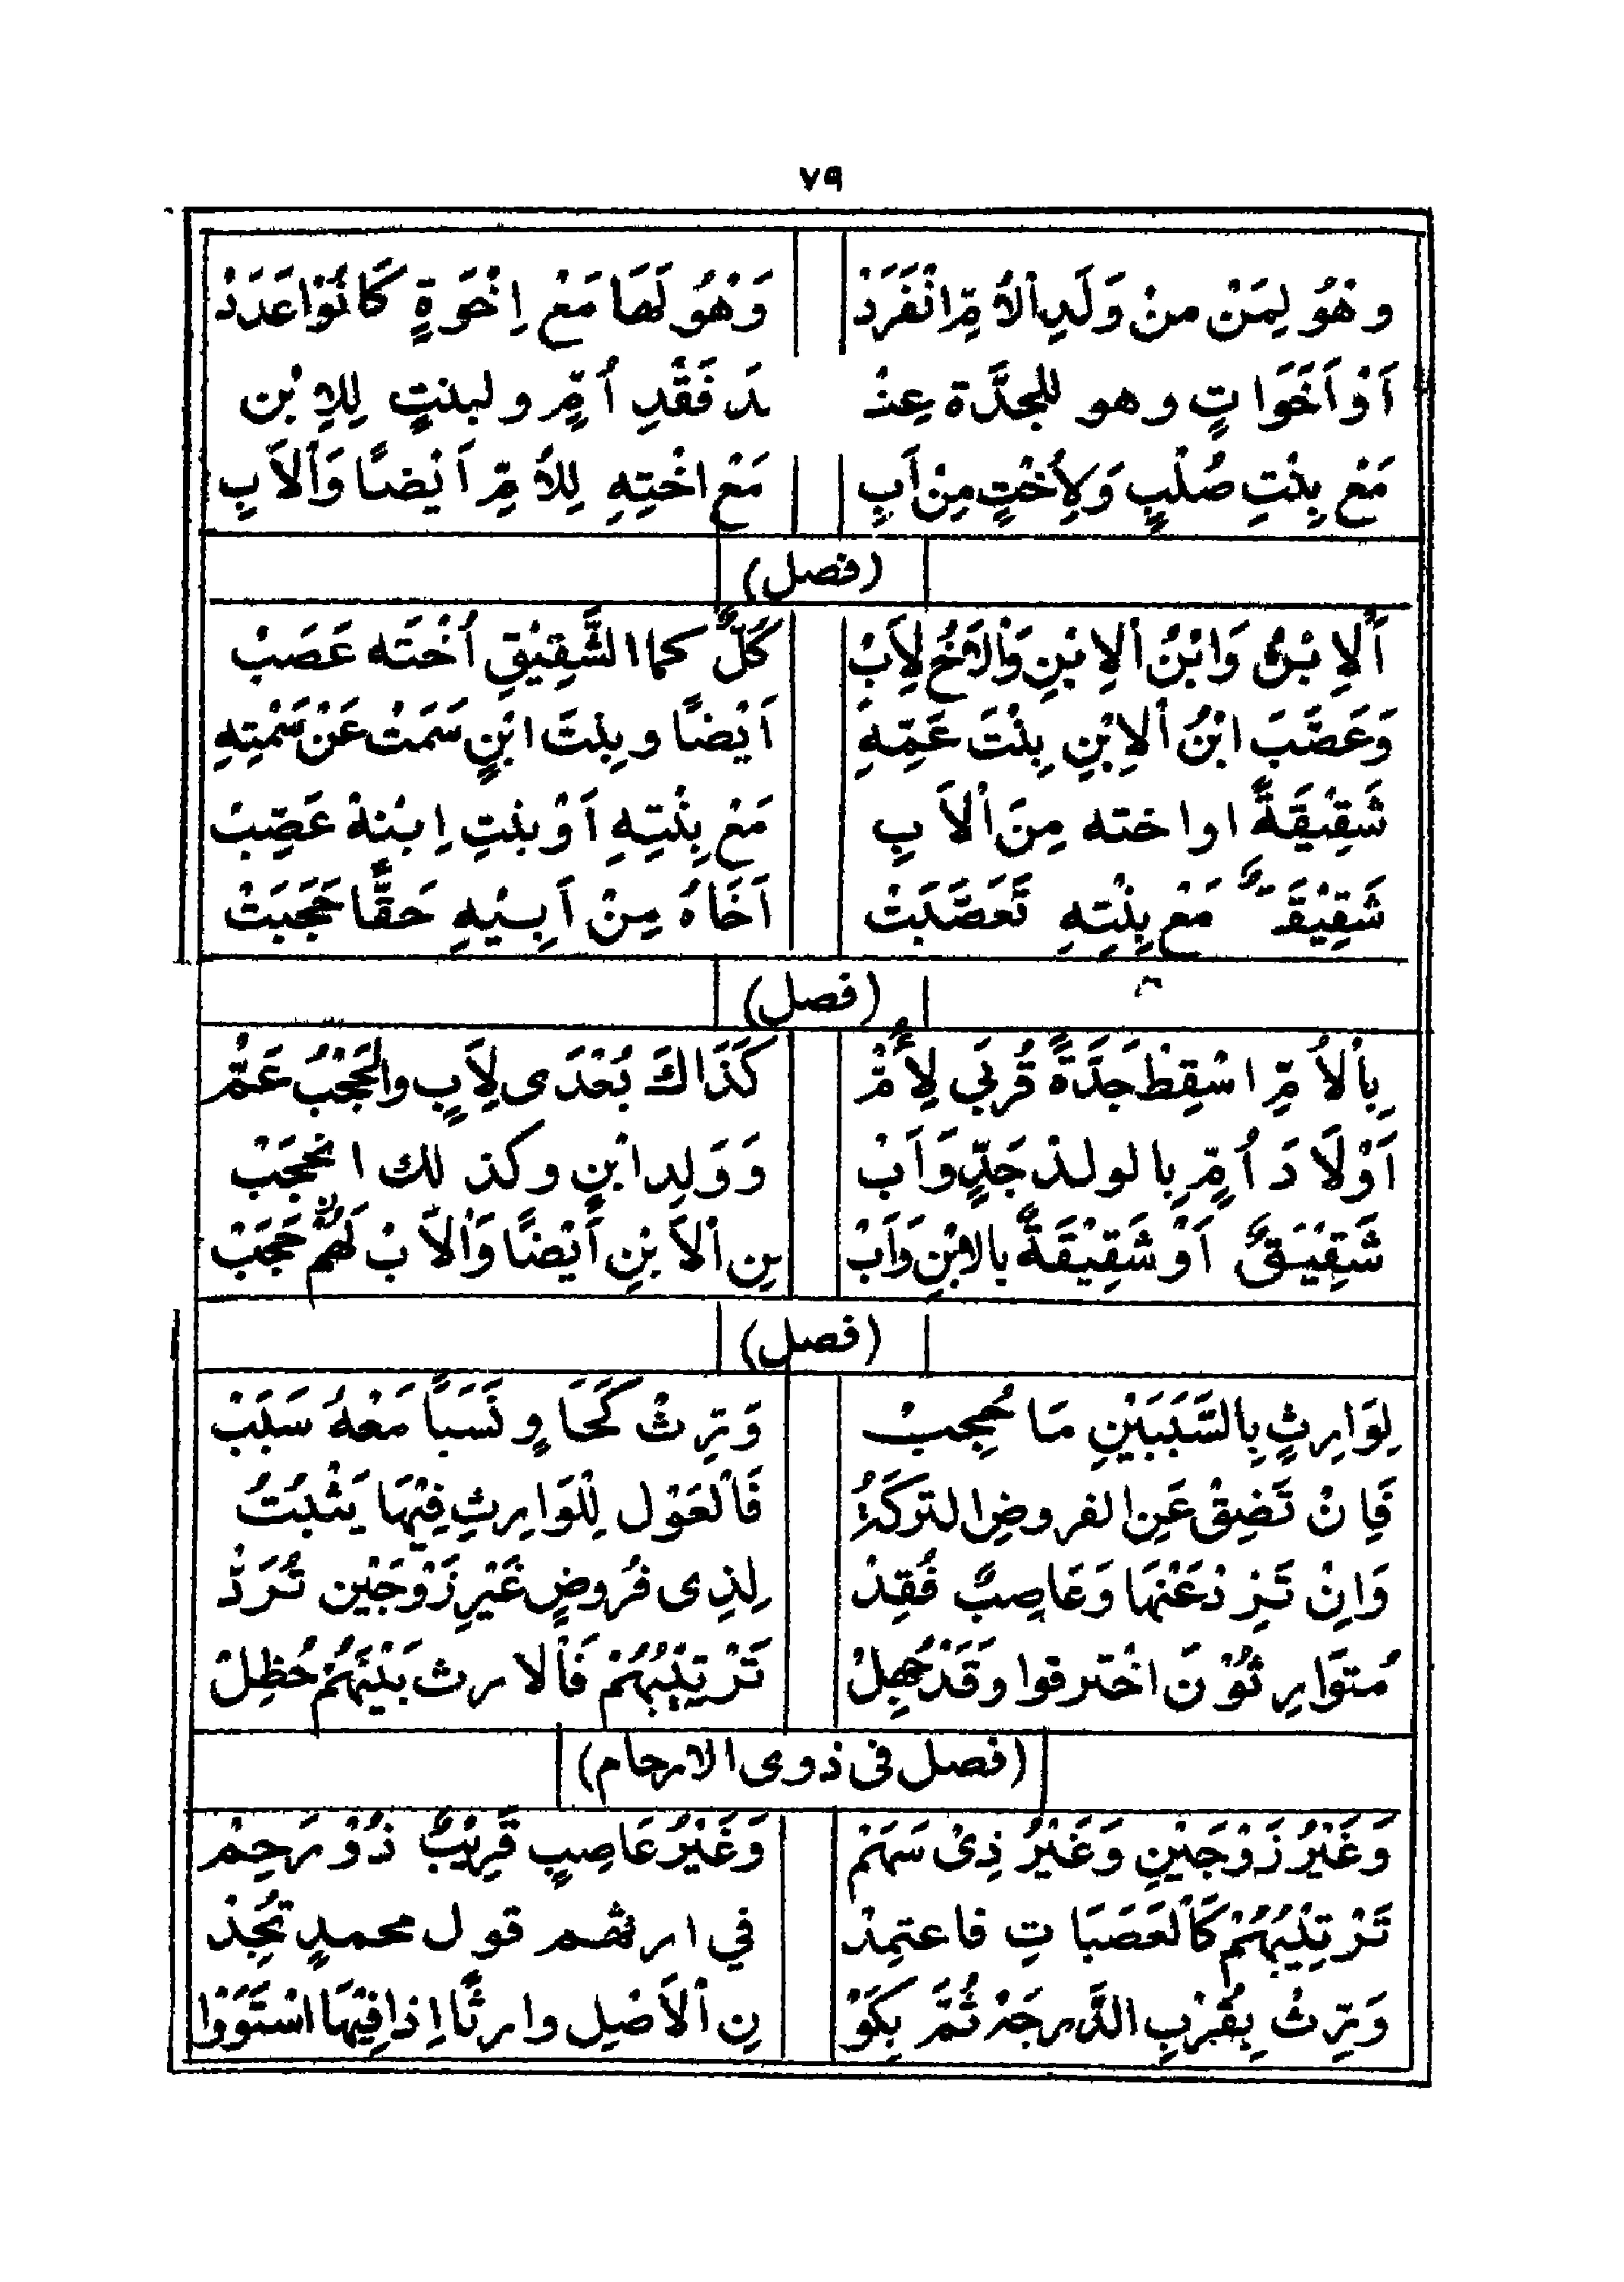 ٧٩
وهْوُ لِمَنْ منْ وَلَدِ اْلاُمِّ انْفَرَدْ وَهْوُ لَهَا مَعْ اِخْوَةٍ كَانُوْا عَدَدْ
اَوْ اَخَوَاتٍ وهو للجدَّة عِنْـ ـدَ فَقْدِ اُمٍّ ولبنتٍ لِلاِبْن
مَعْ بِنْتِ صُلْبٍ وَلِأُخْتٍ مِنْ اَبِ مَعْ اخْتِهِ لِلأُمِّ اَيْضًا وَاْلاَبِ
(فصل)
اَلاِبْنُ وَابْنُ اْلاِبْنِ وَاْلاَخُ لِاَبْ كُلٌّ كما الشَّقِيْقِ اُخْتَه عَصَبْ
وَعَصَّبَ ابْنُ اْلاِبْنِ بِنْتَ عَمِّهِ اَيْضًا وبِنتَ ابْنٍ سَمَتْ عَنْ سَمْتِهِ
شَقِيْقَةً او اخته مِنَ اْلاَبِ مَعْ بِنْتِهِ اَوْ بنتِ اِبْنهْ عَصِّبْ
شَقِيْقَةٌ مَعْ بِنْتِهِ تَعَصَّبَتْ اَخَاهُ مِنْ اَبِيْهِ حَقًّا حَجَبَتْ
(فصل)
بِاْلاُمِّ اسْقِطْ جَدَّةً قُرْبَي لِأُمّْ كَذَاكَ بُعْدَى لِاَبٍ والْحَجْبُ عَمّْ
اَوْلَادَ اُمٍّ بِالولدْ جَدٍّ وَاَبْ وَوَلِدِ ابْنٍ وكذلك انحجَبْ
شَقِيْقٌ اَوْ شَقِيْقَةٌ بالابْنِ وَاَبْ بِن اْلاِبْنِ اَيْضًا وَاْلاَبْ لَهُمْ حَجَبْ
(فصل)
لِوَارِثٍ بِالسَّبَبَيْنِ مَا حُجِبْ وَرِّثْ كَحَاوٍ نَسَبًا مَعْهُ سَبَبْ
فَاِنْ تَضِقْ عَنِ الفروضِ التركَةُ فَاْلعَوْل لِلْوَارِثِ فِيْهَا يَثْبُتُ
وَاِنْ تَزِدْ عَنْهَا وَعَاصِبٌ فُقِدْ لِذِى فُرُوضٍ غَيْرِ زَوْجَيْن تُرَدّْ
مُتوَارِثُوْنَ اخْترقوا وَقَدْ جُهِلْ تَرْتِيْبُهُمْ فَاْلارث بَيْنَهُمْ حُظِلْ
(فصل فى ذوى الارحام)
وَغَيْرُ زَوْجَيْنِ وَغَيْرُ ذِىْ سَهَمْ وَغَيْرُ عَاصِبٍ قَرِيْبٌ ذُوْ رَحِمْ
تَرْتِيْبُهُمْ كَاْلعَصَبَاتِ فاعتمِدْ في ارثهم قول محمدٍ تُجِدْ
وَرِّثْ بِقُرْبِ الدَّرجَهْ ثُمَّ بِكَوْ نِ اْلاَصْلِ وارثًا اِذا فِيْهَا اسْتَوَوْا